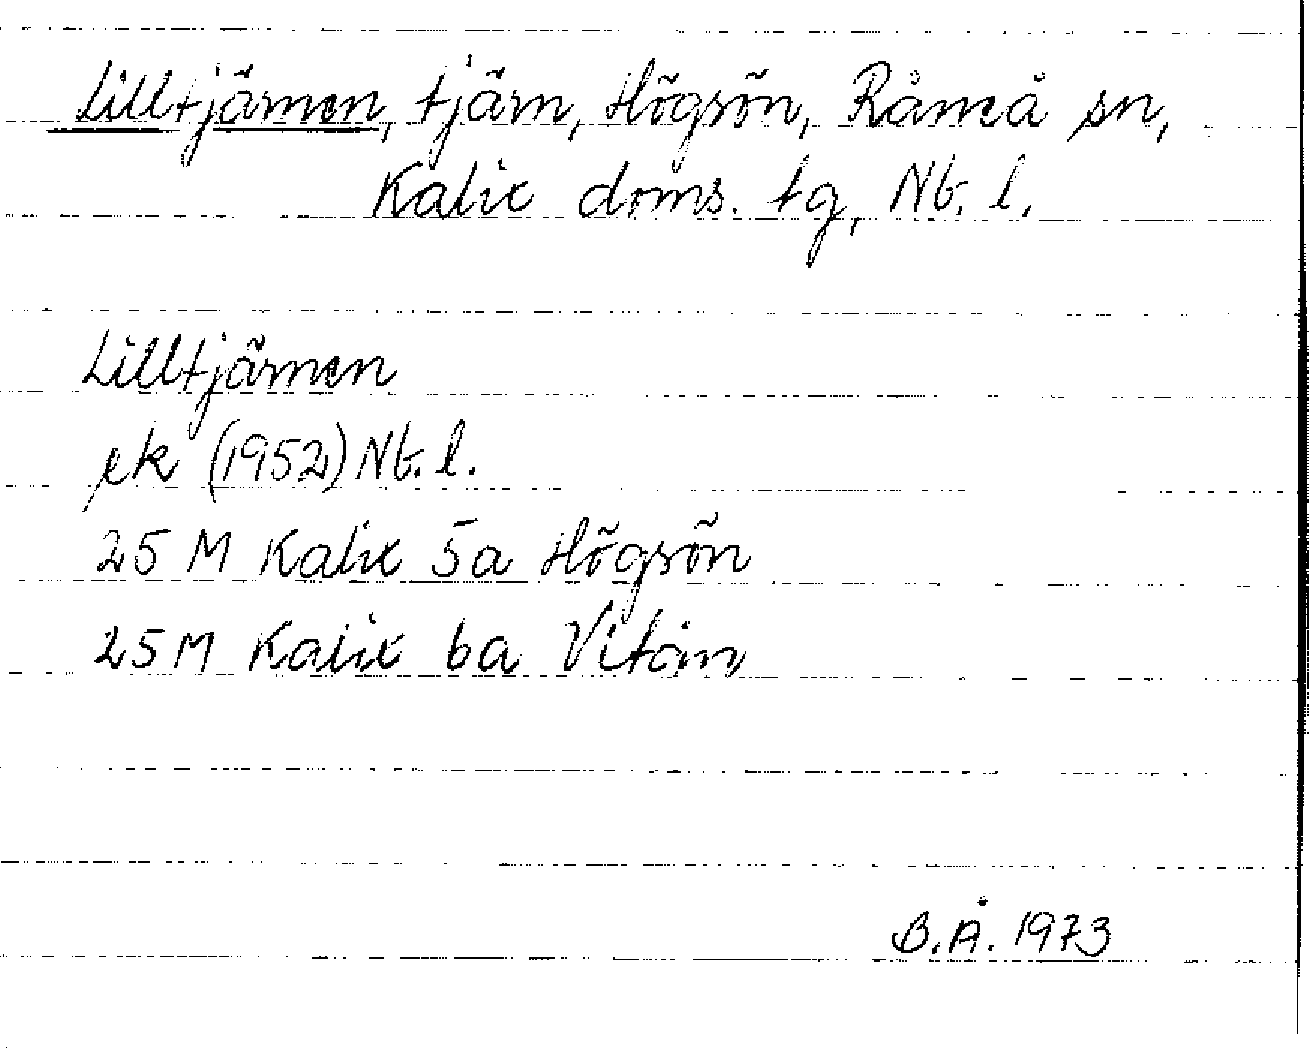 Lilltjärnen, tjärn, Högsön, Råneå sn,
Kalix doms. tg, Nb. l.
Lilltjärnen
ek (1952) Nb. l.
25 M Kalix 5a Högsön
25 M Kalix 6a Vitån
B.Å. 1973